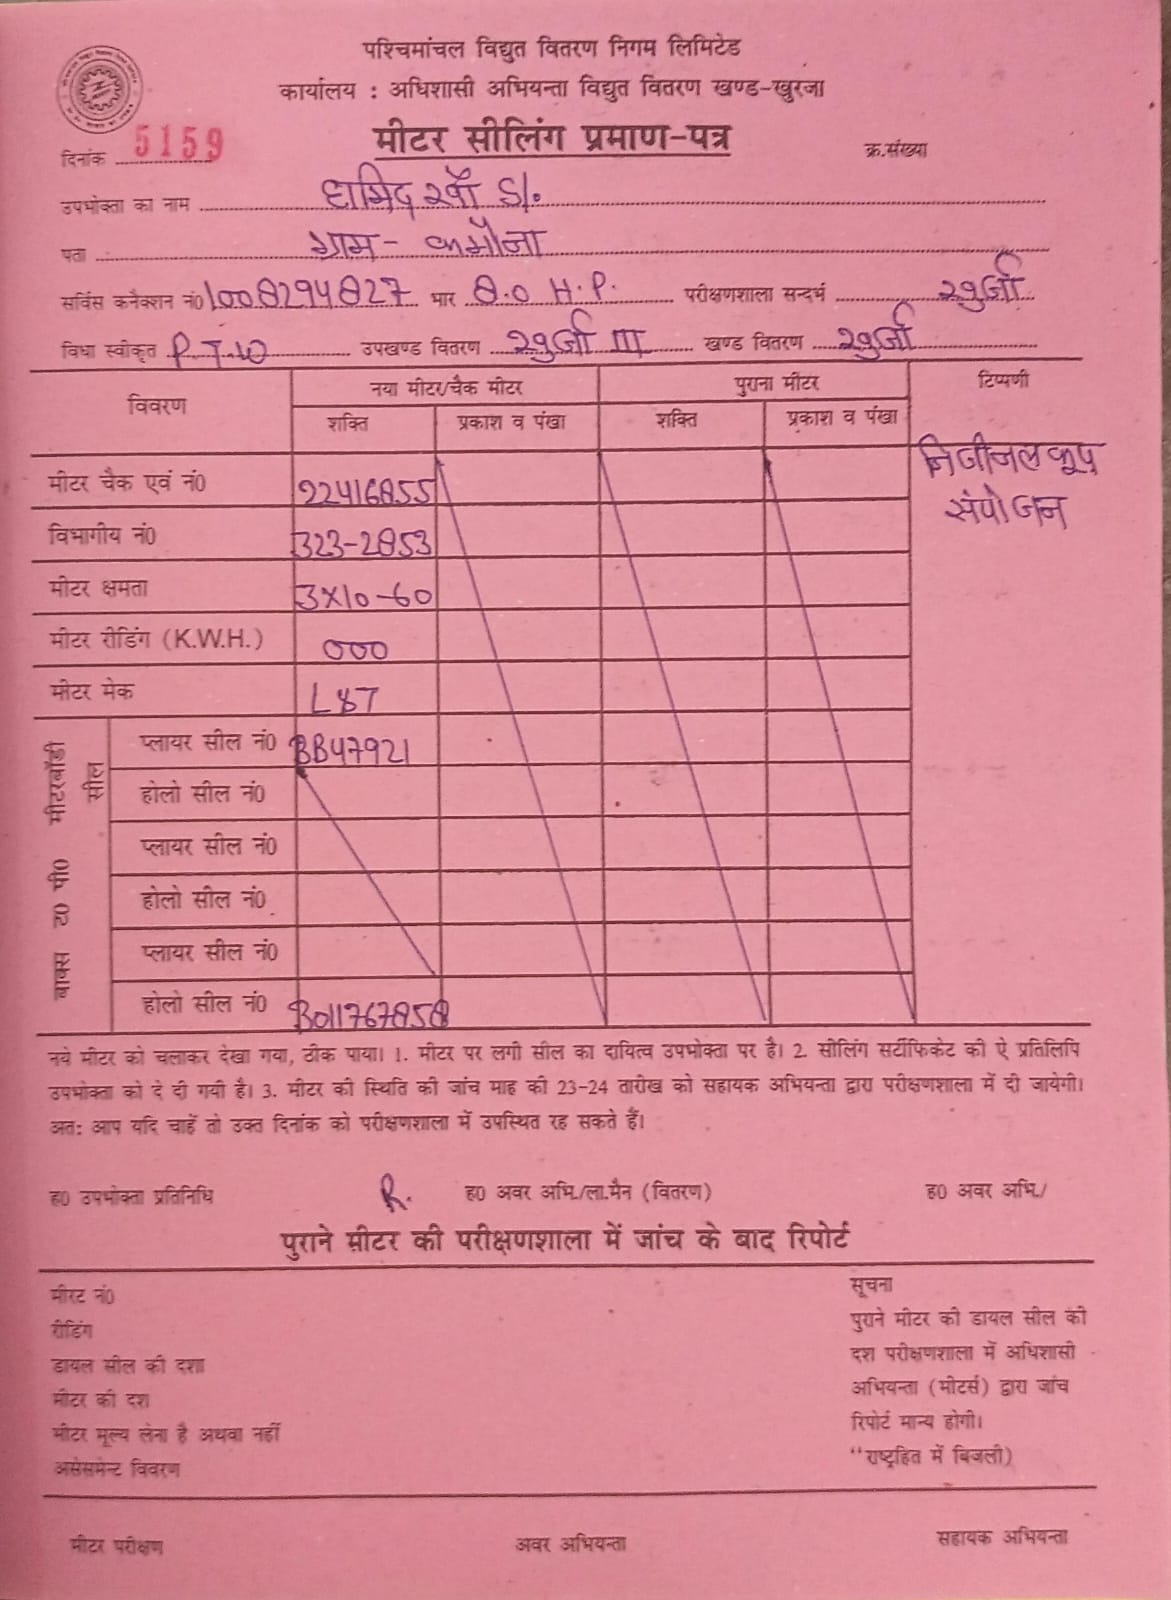 पश्चिमांचल विद्युत वितरण निगम लिमिटेड
कार्यालय : अधिशासी अभियन्ता विद्युत वितरण खण्ड-खुरजा
मीटर सीलिंग प्रमाण-पत्र
दिनांक 5159 क्र.संख्या
उपभोक्ता का नाम हामिद खॉ S/.
पता ग्राम-
सर्विस कनैक्शन नं0 1008294827 भार 8.0 H.P. परीक्षणशाला सन्दर्भ खुर्जा
विधा स्वीकृत P.T.W उपखण्ड वितरण खुर्जा III खण्ड वितरण खुर्जा
विवरण नया मीटर/चैक मीटर पुराना मीटर टिप्पणी
शक्ति प्रकाश व पंखा शक्ति प्रकाश व पंखा
मीटर चैक एवं नं0 22416855 निजीनलकूप
संयोजन
विभागीय नं0 323-2853
मीटर क्षमता 3x10-60
मीटर रीडिंग (K.W.H.) 000
मीटर मेक L&T
मीटरबॉडी सील
प्लायर सील नं0 BB47921
होलो सील नं0
बाक्स टा0 पी0
प्लायर सील नं0
होलो सील नं0
प्लायर सील नं0
होलो सील नं0 B011767858
नये मीटर को चलाकर देखा गया, ठीक पाया। 1. मीटर पर लगी सील का दायित्व उपभोक्ता पर है। 2. सीलिंग सर्टीफिकेट की ऐ प्रतिलिपि
उपभोक्ता को दे दी गयी है। 3. मीटर की स्थिति की जांच माह की 23-24 तारीख को सहायक अभियन्ता द्वारा परीक्षणशाला में दी जायेगी।
अतः आप यदि चाहें तो उक्त दिनांक को परीक्षणशाला में उपस्थित रह सकते हैं।
ह0 उपभोक्ता प्रतिनिधि R. ह0 अवर अभि./ला.मैन (वितरण) ह0 अवर अभि./
पुराने मीटर की परीक्षणशाला में जांच के बाद रिपोर्ट
मीरट नं0
रीडिंग
डायल सील की दशा
मीटर की दश
मीटर मूल्य लेना है अथवा नहीं
असेसमेन्ट विवरण
सूचना
पुराने मीटर की डायल सील की
दश परीक्षणशाला में अधिशासी
अभियन्ता (मीटर्स) द्वारा जांच
रिपोर्ट मान्य होगी।
"राष्ट्रहित में बिजली)
मीटर परीक्षण अवर अभियन्ता सहायक अभियन्ता